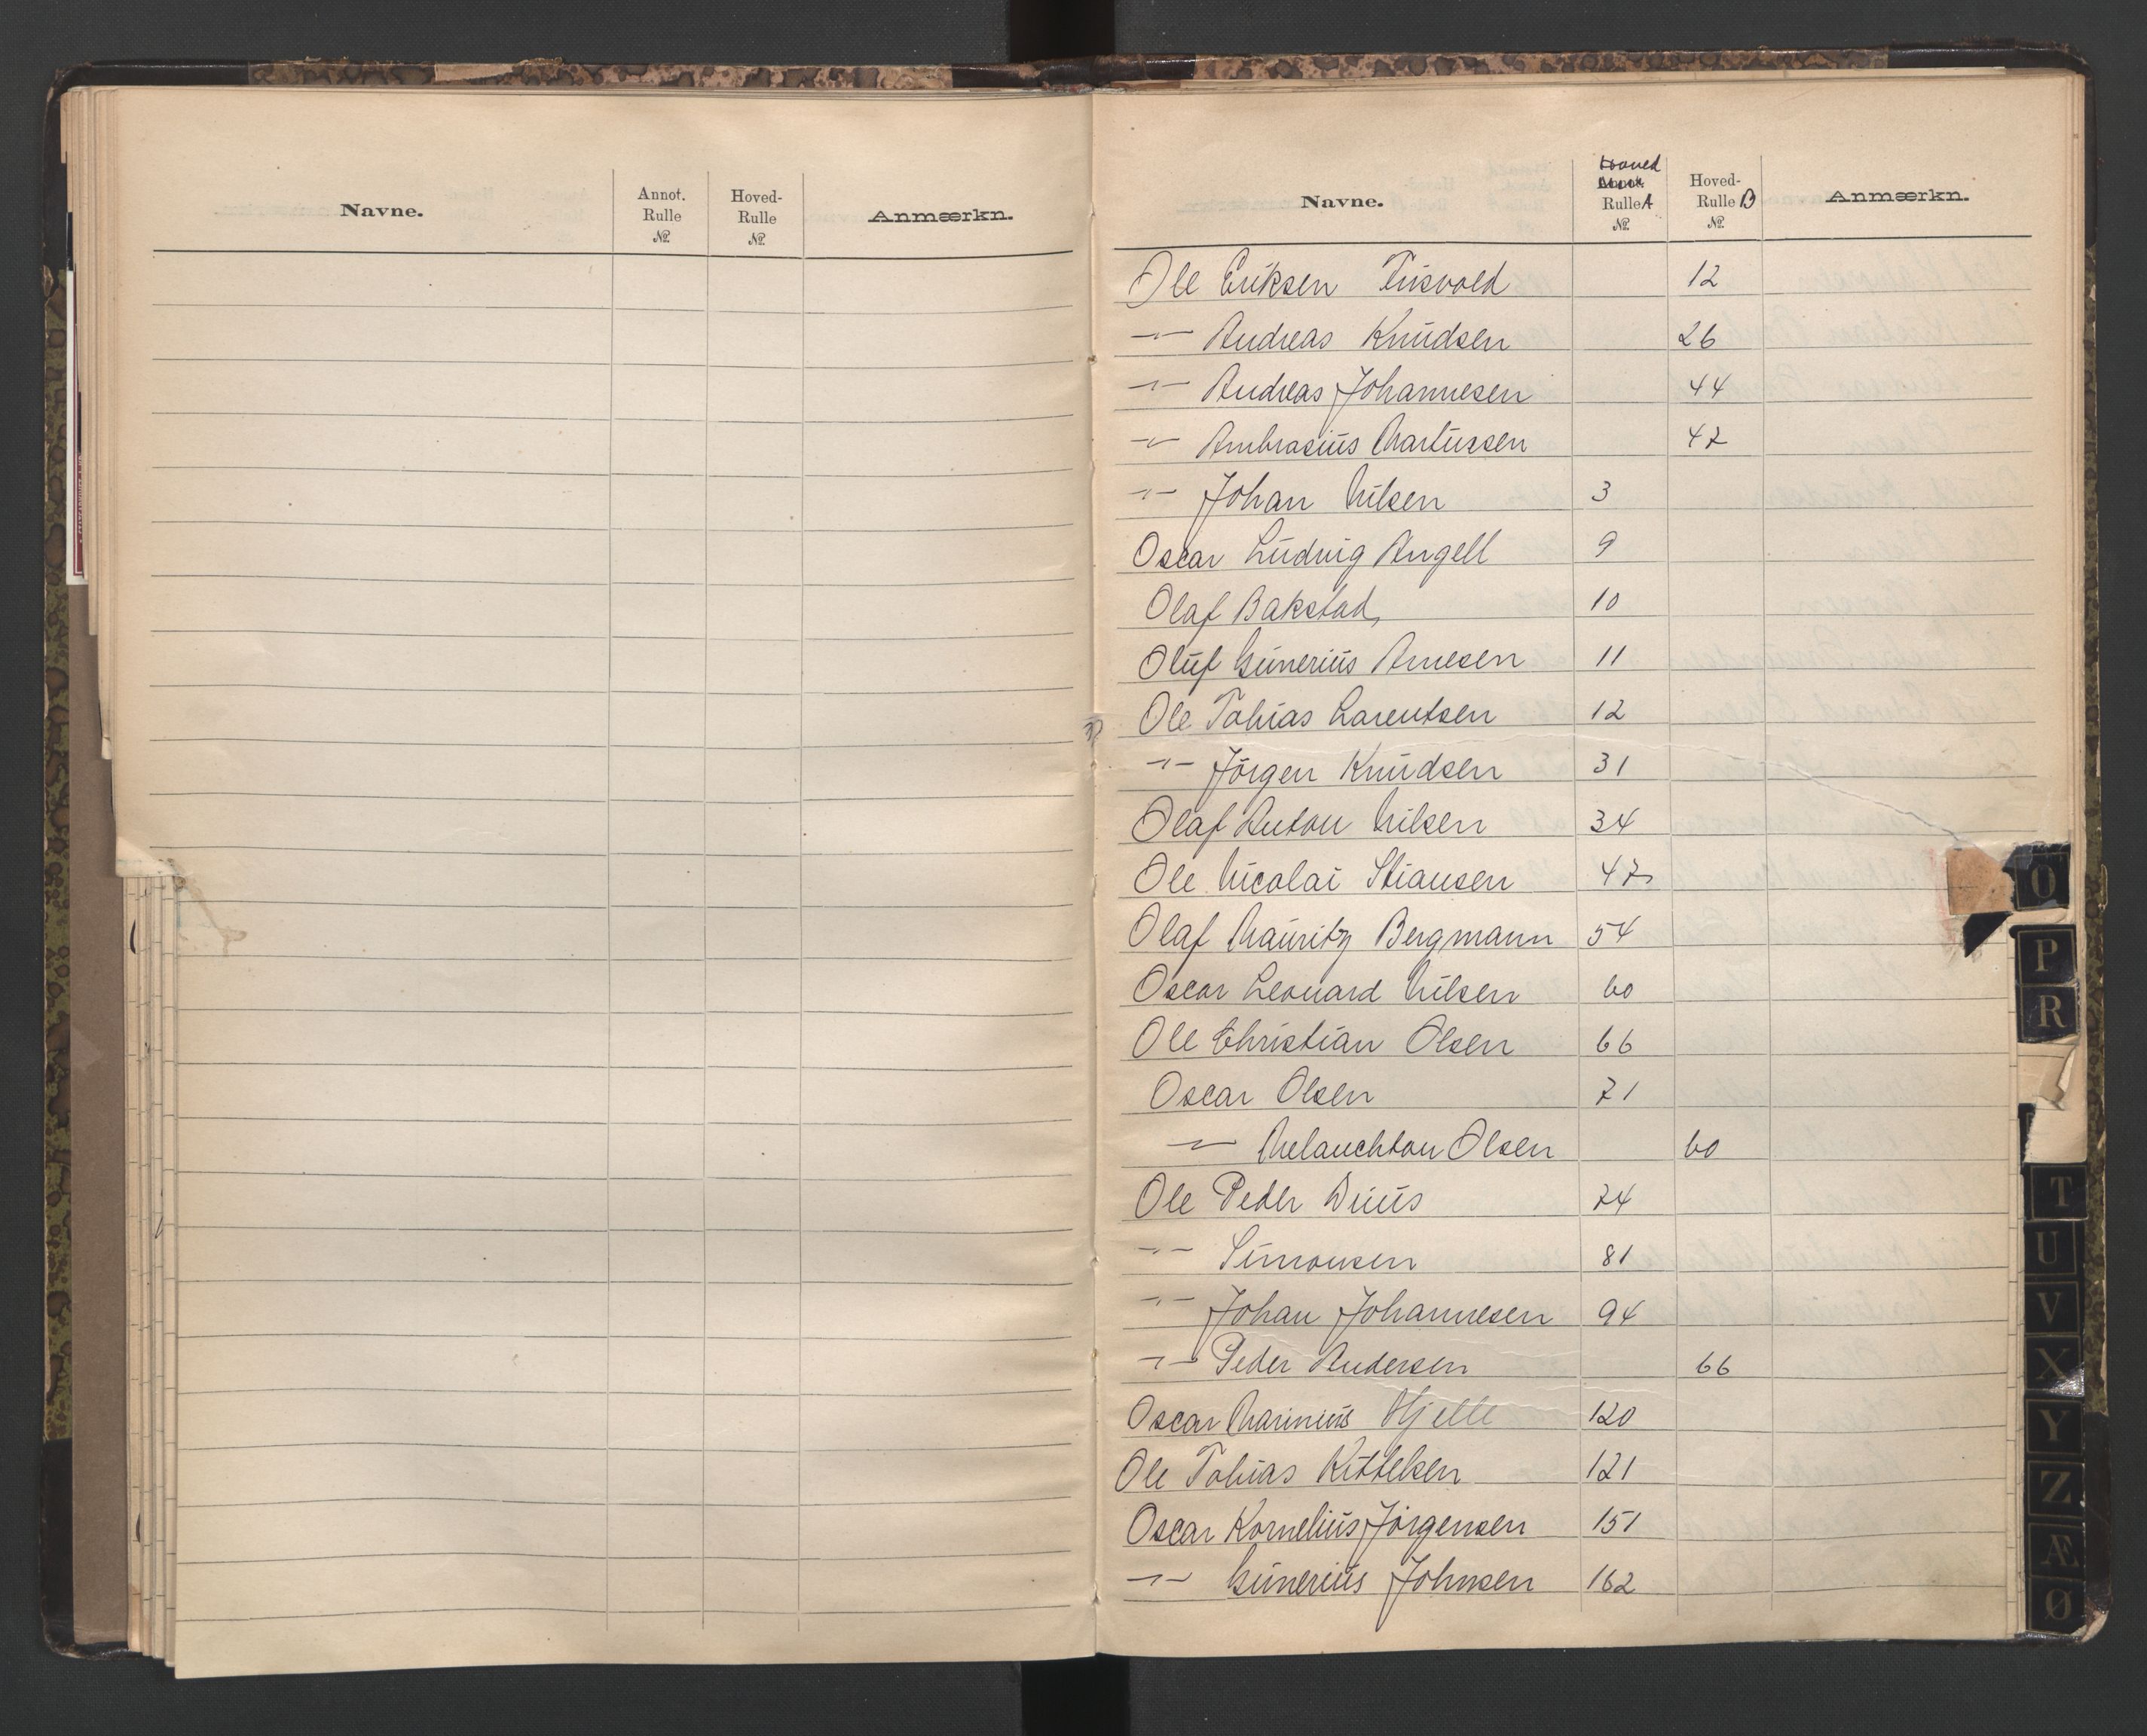 Navne. Annot. Rulle № Hoved- Rulle № Anmærkn.
Navne. Hoved Annot. Rulle A № Hoved- Rulle B № Anmærkn.
Ole Eriksen Tusvold 12
-"- Andreas Knudsen 26
-"- Andreas Johannesen 44
-"- Ambrosius Martussen 42
-"- Johan Nilsen 3
Oscar Ludvig Angell 9
Olaf Bakstad, 10
Oluf Gunerius Arnesen 11
Ole Tobias Larentsen 12
-"- Jörgen Knudsen 31
Olaf Anton Nilsen 34
Ole Nicolai Stiansen 47
Olaf Mauritz Bergmann 54
Oscar Leonard Nilsen 60
Ole Christian Olsen 66
Oscar Olsen 71
-"- Melanchton Olsen 60
Ole Peder 74
-"- Simonsen 81
-"- Johan Johannesen 94
-"- Peder Andersen 66
Oscar Marinius Hjelle 120
Ole Tobias Kittelsen 121
Oscar Kornelius Jörgensen 151
-"- Gunerius Johnsen 162
O
P
R
T
U
V
X
Y
Z
Æ
Ø